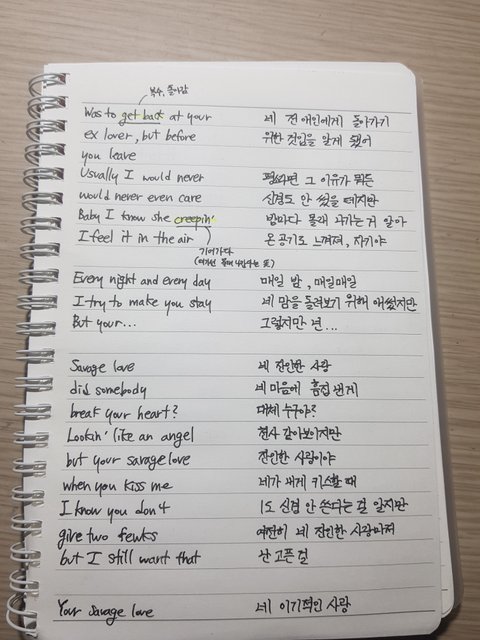 복수, 돌아감
Was to get back at your 네 전 애인에게 돌아가기
ex lover, but before 위한 것임을 알게 됐어
you leave
Usually I would never 평소라면 그 이유가 뭐든
would never even care 신경도 안 썼을 테지만
Baby I know she creepin' 밤마다 몰래 나가는 거 알아
I feel it in the air 온 공기로 느껴져, 자기야
기어가다
Every night and every day 매일 밤, 매일매일
I try to make you stay 네 맘을 돌려보기 위해 애썼지만
But your... 그렇지만 넌...
Savage love 네 잔인한 사랑
did somebody 네 마음에 흠집 낸 게
break your heart? 대체 누구야?
Lookin' like an angel 천사 같아보이지만
but your savage love 잔인한 사랑이야
when you kiss me 네가 내게 키스할 때
I know you don't 1도 신경 안 쓴다는 걸 알지만
give two fewks 여전히 네 잔인한 사랑마저
but I still want that 난 고픈 걸
Your savage love 네 이기적인 사랑